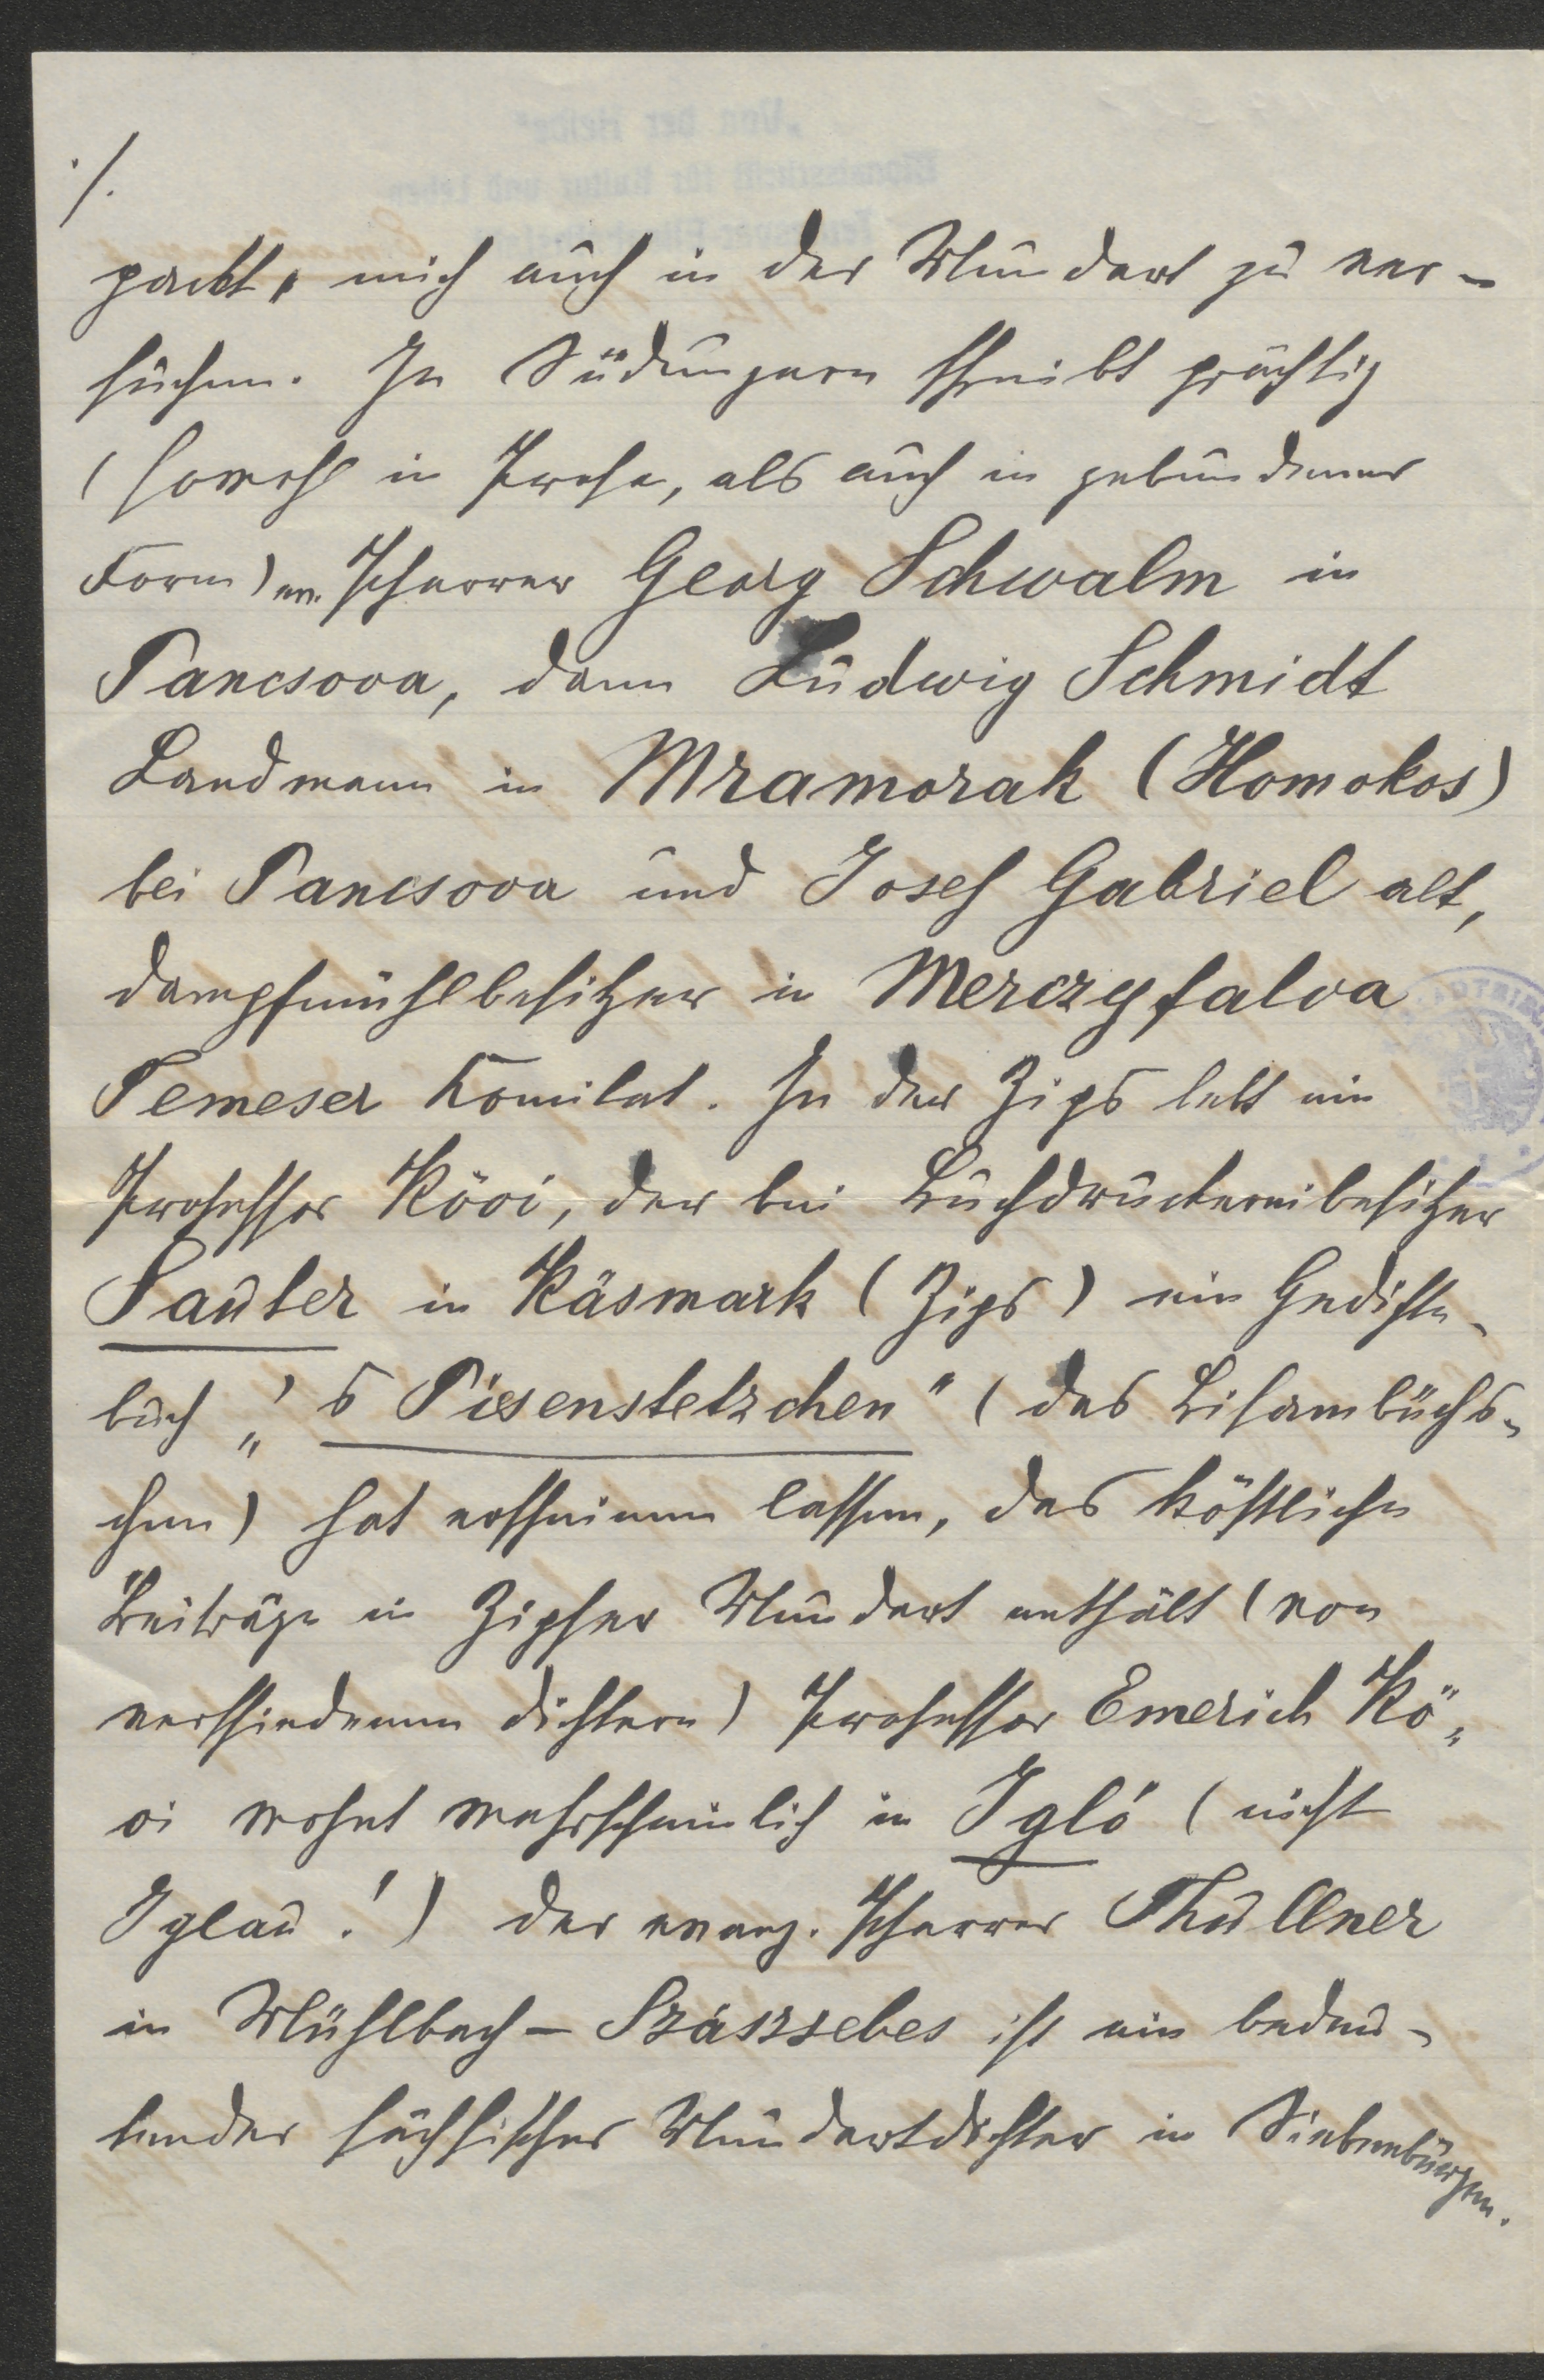 ./.
packt, mich auch in der Mundart zu ver-
suchen. In Südungarn schreibt prächtig
(sowohl in Prosa, als auch in gebundener
Form) ev. Pfarrer Georg Schwalm in
Pancsova, dann Ludwig Schmidt
Landmann in Mramorak (Homokos)
bei Pancsova und Josef Gabriel alt,
Dampfmühlbesitzer in Merczyfalva
Temeser Komitat. In der Zips lebt ein
Professor Kövi, der bei Buchdruckereibesitzer
Sauter in Käsmark (Zips) ein Gedichte-
buch „'s Piesenstetzchen" (das Bisambüchs-
chen) hat erscheinen lassen, das köstliche
Beiträge in Zipser Mundart enthält (von
verschiedenen Dichtern) Professor Emerich Kö-
vi wohnt wahrscheinlich in Igló (nicht
Iglau!) Der evang. Pfarrer Thullner
in Mühlbach - Szászsebes ist ein bedeu-
tender sächsischer Mundartdichter in Siebenbürgen.